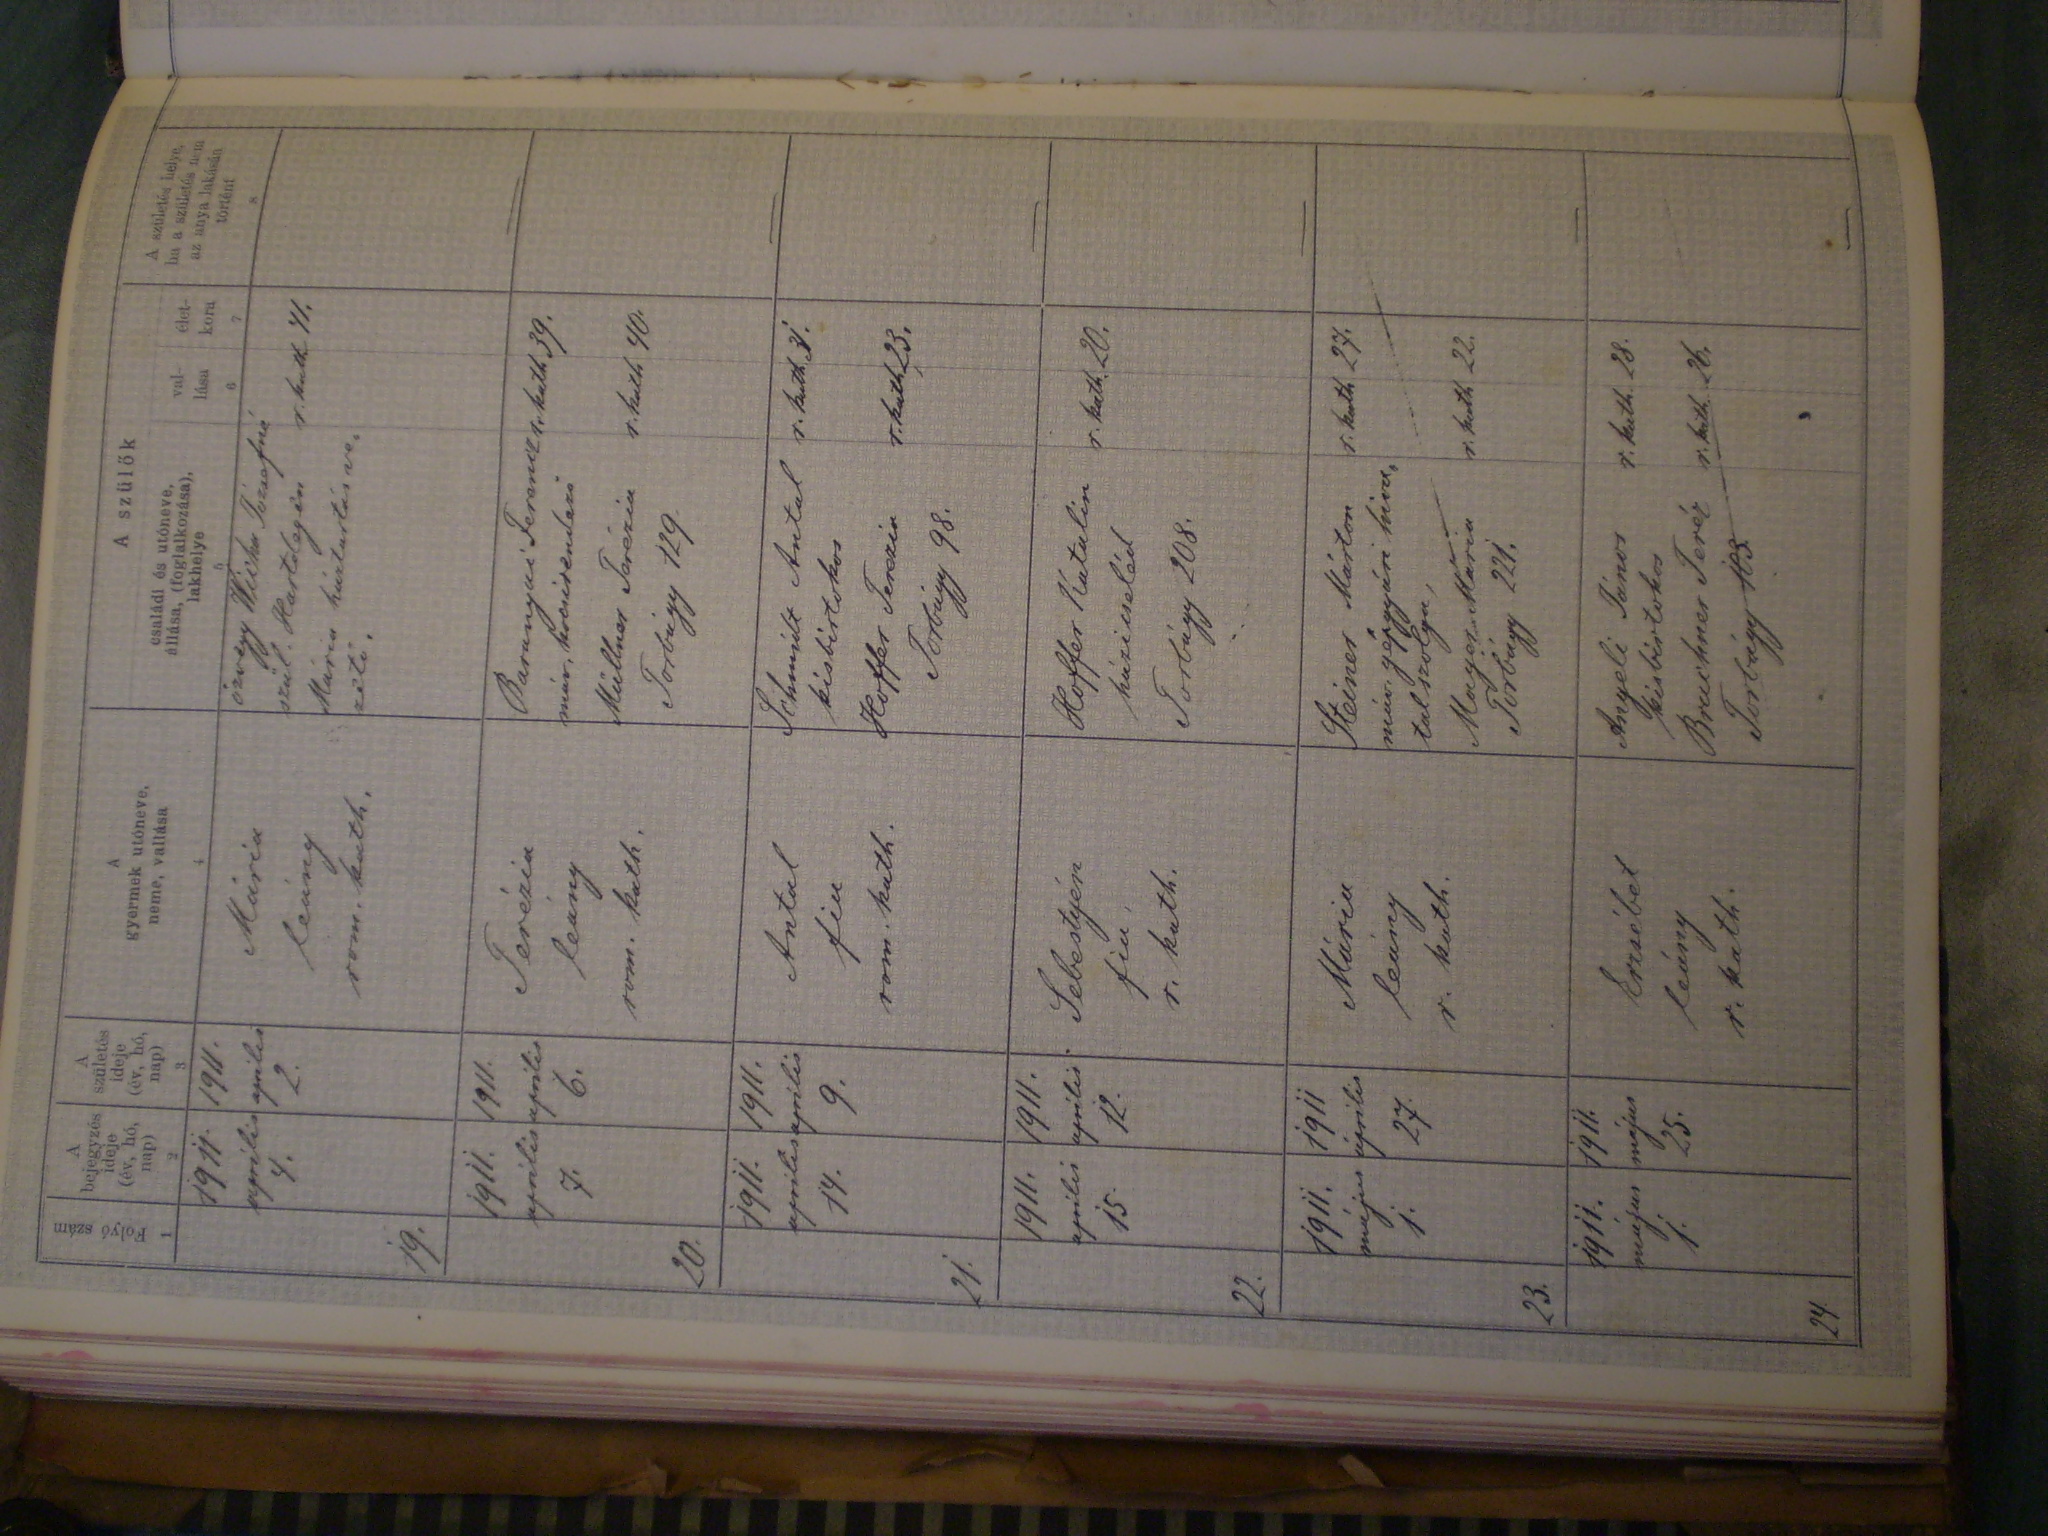 A szülők
Folyó szám
A bejegyzés ideje (év, hó, nap)
A születés ideje (év, hó, nap)
A gyermek utóneve, neme, vallása
családi és utóneve, állása, (foglalkozása), lakhelye
val-lása
élet-kora
A születés helye, ha a születés nem az anya lakásán történt
1 2 3 4 5 6 7 8
19.
1911. április 4.
1911. április 2.
Mária
leány
rom. kath.
özvegy Józsefné
szül.
Mária háztartásve,
zető.
r. kath 41.
20.
1911. április 7.
1911. április 6.
Terézia
leány
rom. kath.
Baranyai Ferencz r. kath 39.
máv.
Müllner Terézia r. kath 40.
Torbágy 129.
21.
1911. április 14.
1911. április 9.
Antal
fiu
rom. kath.
Schmidt Antal r. kath 31.
kisbirtokos
Hoffer Terezia r. kath 23.
Torbágy 98.
22.
1911. április 15.
1911. április 12.
Sebestyén
fiu
r. kath.
Hoffer Katalin r. kath. 20.
házicseléd
Torbágy 208.
23.
1911. május 1.
1911 április 27.
Mária
leány
r. kath.
Steiner Márton r. kath 27.
máv. gépgyári hiva,
talszolga,
Mayer Mária r. kath 22.
Torbágy 221.
24
1911. május 1.
1911. május 25.
Erzsébet
leány
r. kath.
Angeli János r. kath. 28.
kisbirtokos
Teréz r. kath. 26.
Torbágy 183.